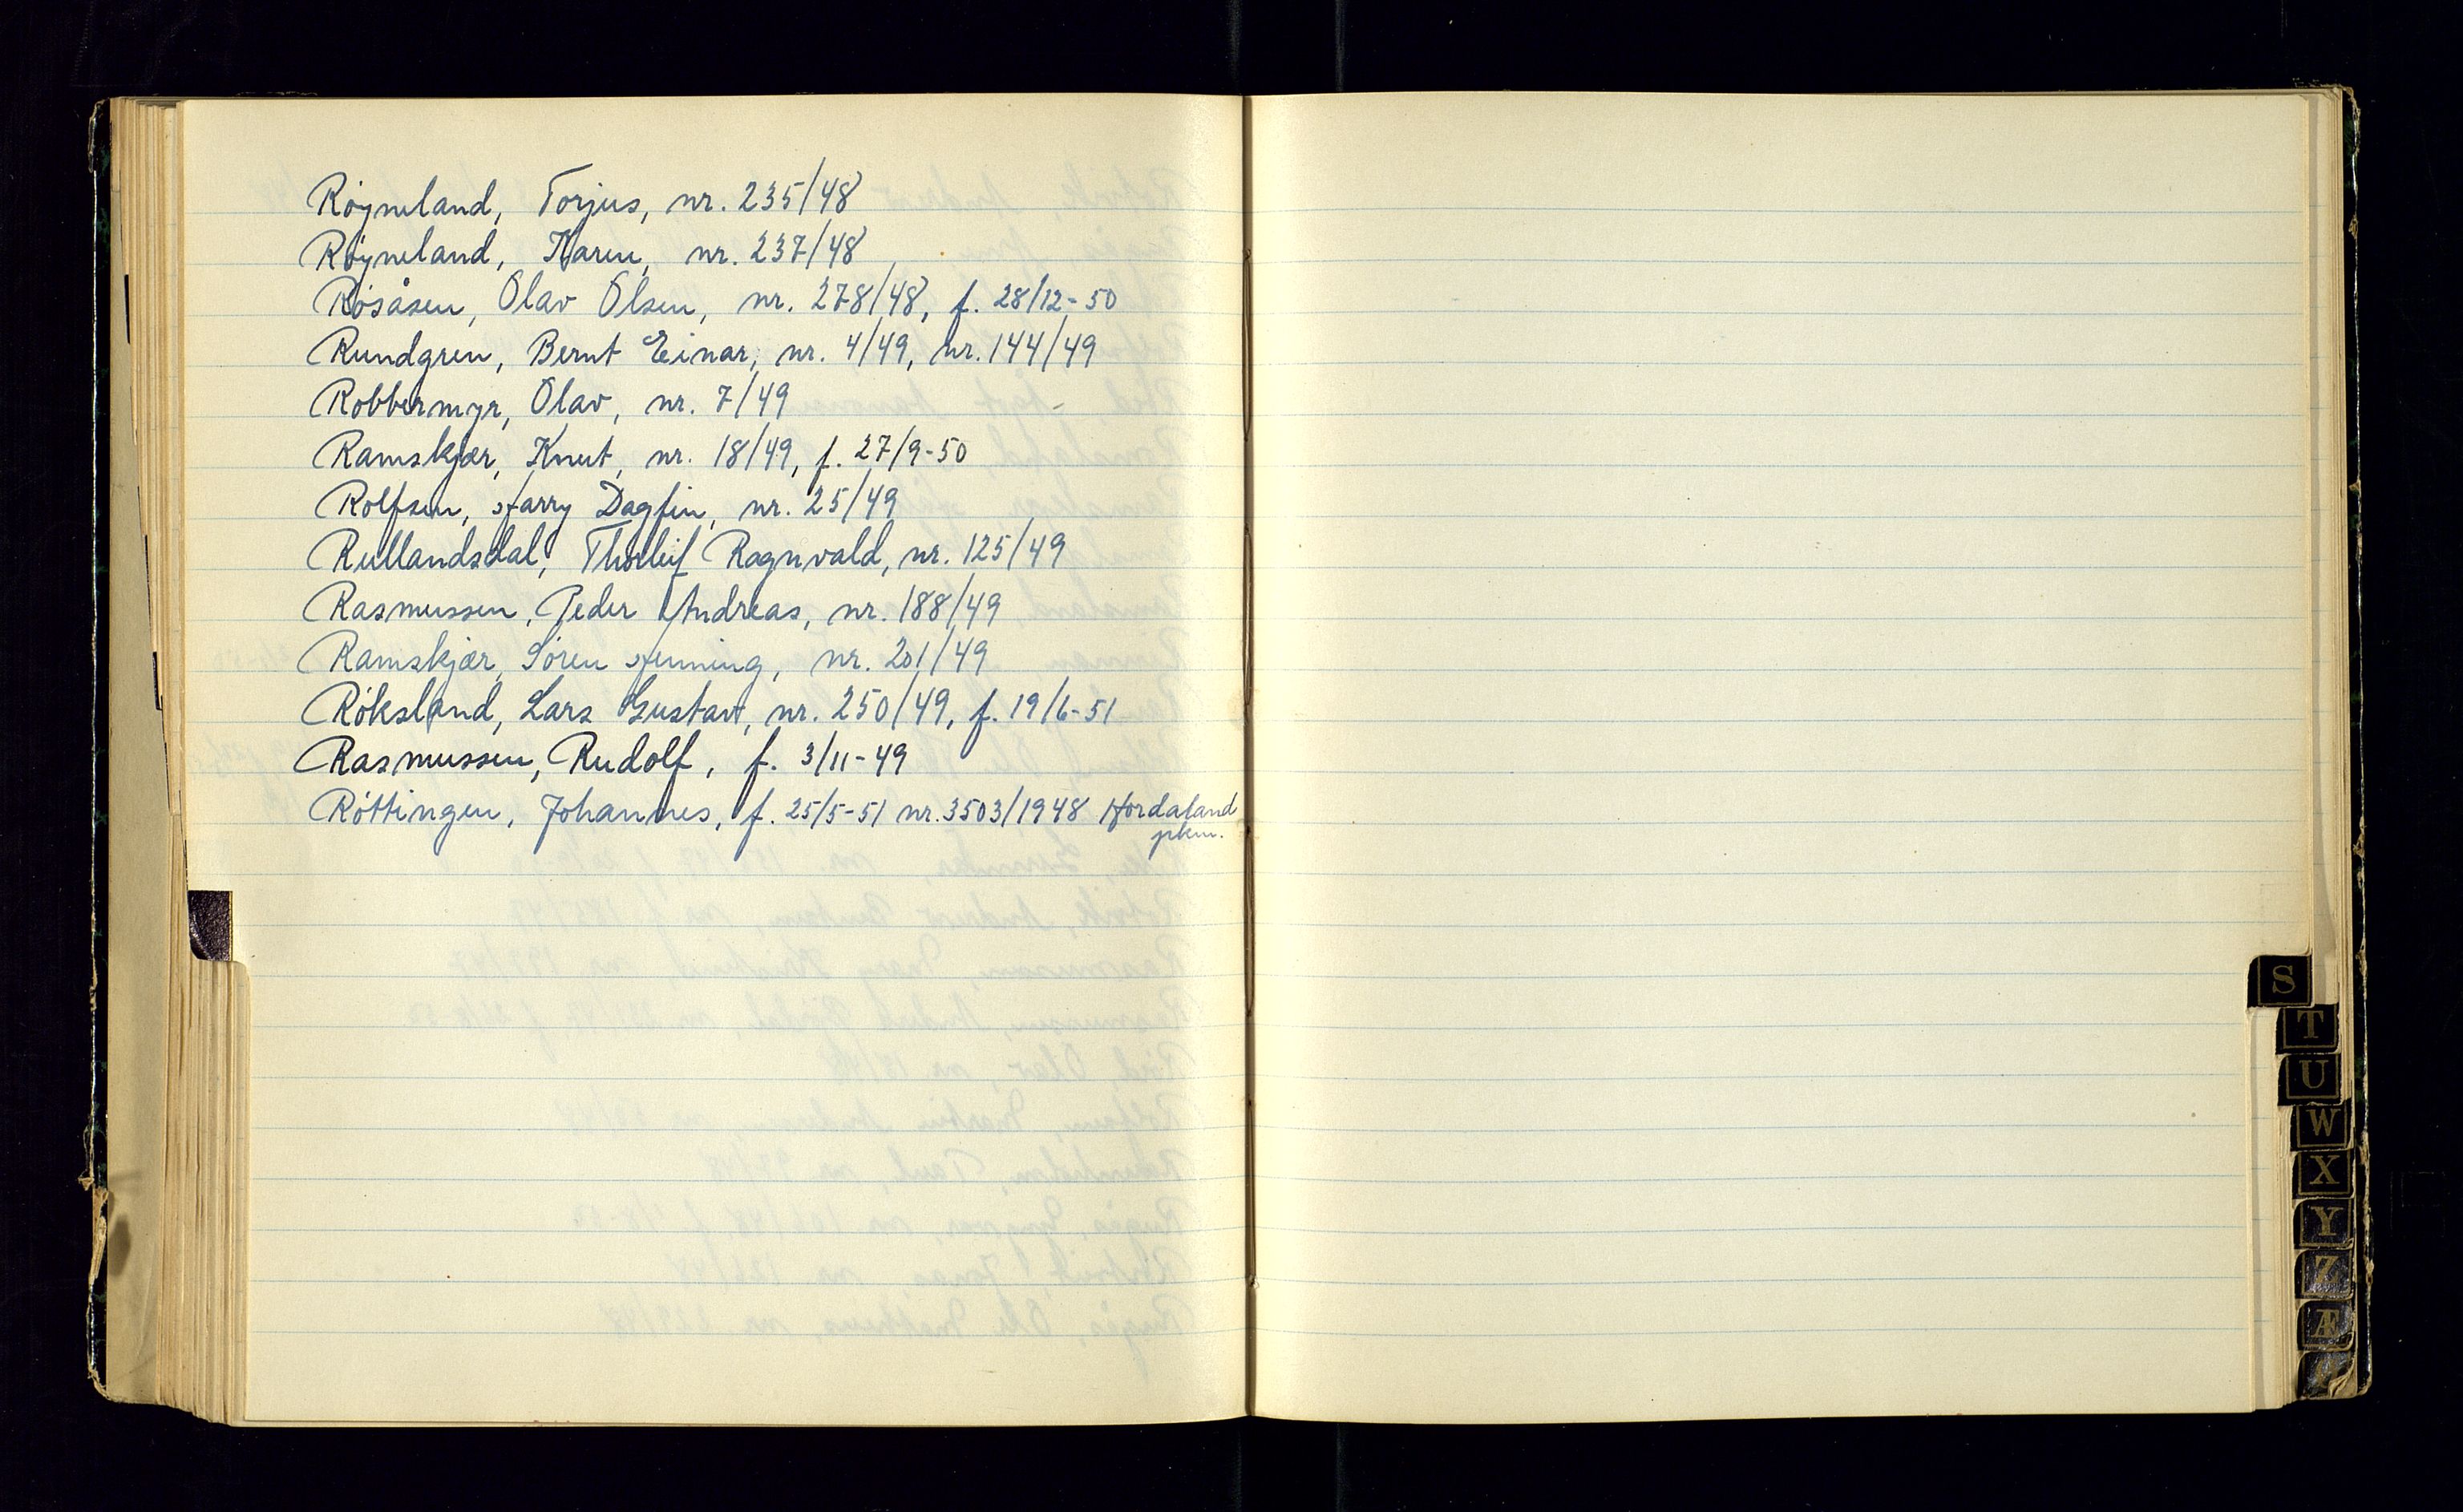 Røyneland, Torjus, nr. 235/48
Røyneland, Karen, nr. 237/48
Røsåsen, Olav Olsen, nr. 278/48, f. 28/12-50
Rundgren, Bernt Einar, nr. 4/49, nr. 144/49
Robbermyr, Olav, nr. 7/49
Ramskjær, Knut, nr. 18/49, f. 27/9-50
Rolfsen, Harry Dagfin, nr. 25/49
Rullandsdal, Thorleif Ragnvald, nr. 125/49
Rasmussen, Peder Andreas, nr. 188/49
Ramskjær, Søren Henning, nr. 201/49
Røksland, Lars Gustav, nr. 250/49, f. 19/6-51
Rasmussen, Rudolf, f. 3/11-49
Røttingen, Johannes, f. 25/5-51 nr. 3503/1948 Hordaland
pkm.
S
T
U
W
X
Y
Z
Æ